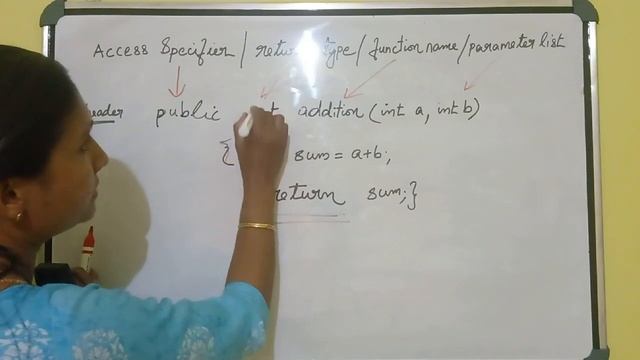 Access Specifier / return Type / function name / parameter list
public addition (int a, int b)
{ sum = a+b;
return sum; }